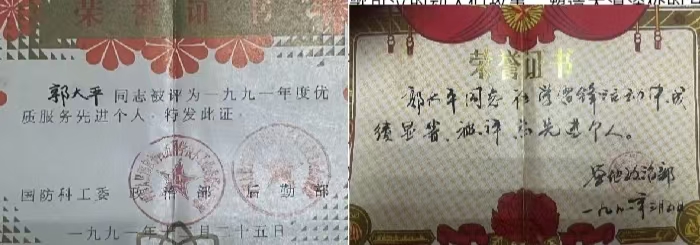 荣誉证书
郭太平同志被评为一九九一年度优
质服务先进个人，特发此证。
国防科工委 政治部 后勤部
一九九一年十二月二十五日
荣誉证书
郭太平同志在学雷锋活动中，成
绩显著，被评为先进个人。
基地政治部
一九九二年三月